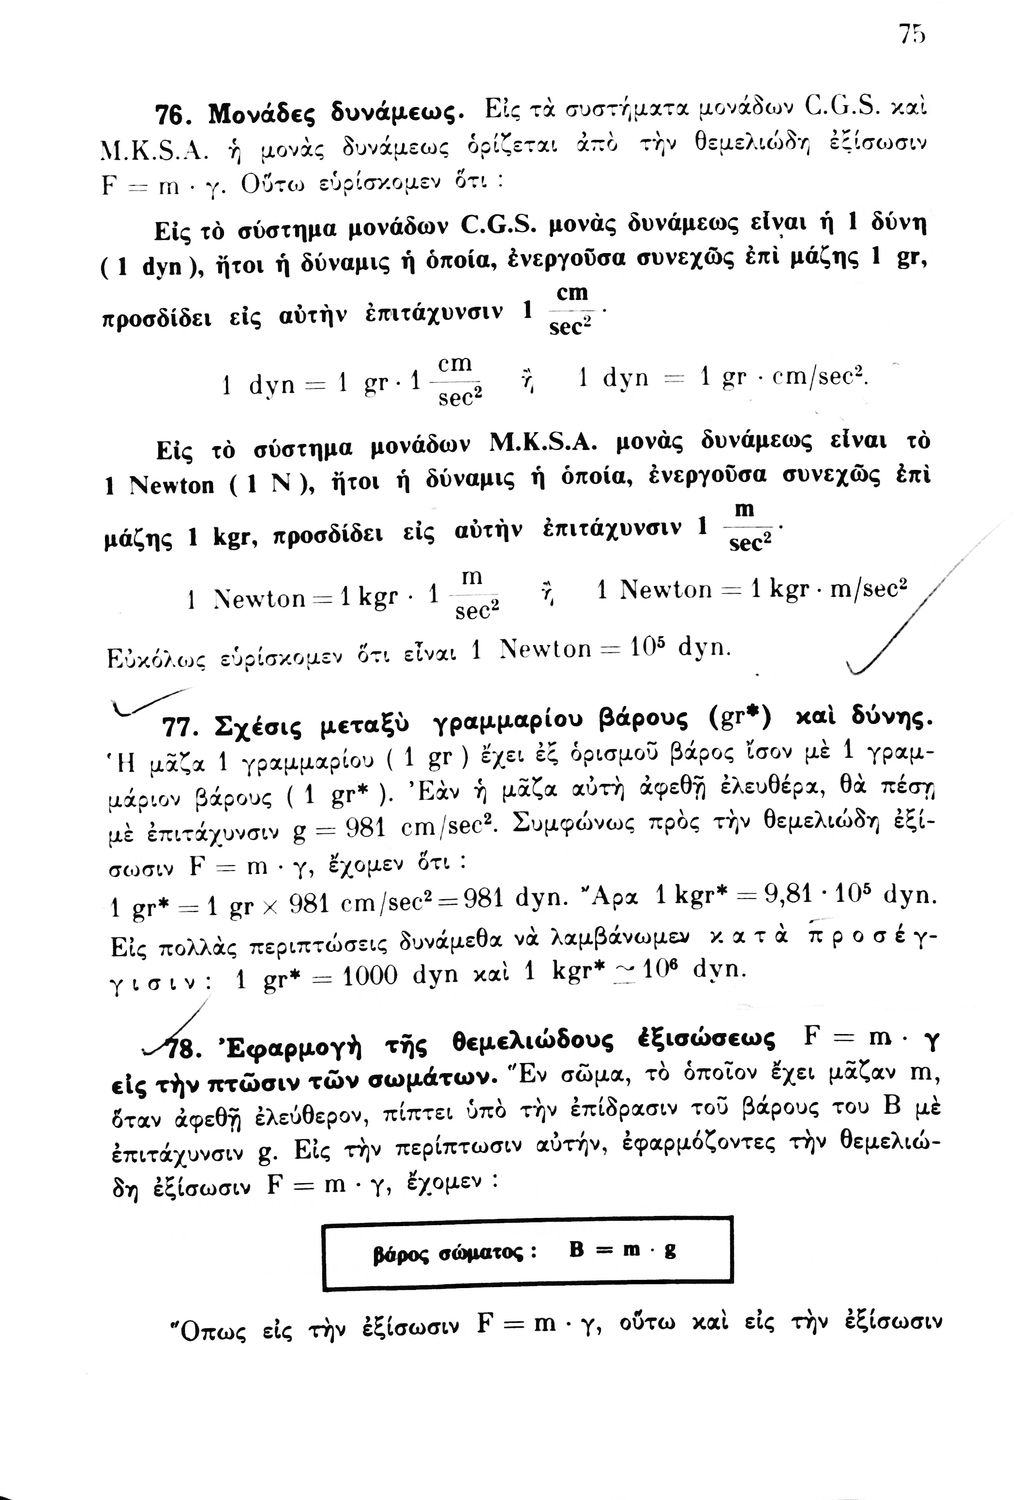 75
76. Μονάδες δυνάμεως. Εἰς τὰ συστήματα μονάδων C.G.S. καὶ
M.K.S.A. ἡ μονὰς δυνάμεως ὁρίζεται ἀπὸ τὴν θεμελιώδη ἐξίσωσιν
F = m · γ. Οὕτω εὑρίσκομεν ὅτι :
Εἰς τὸ σύστημα μονάδων C.G.S. μονὰς δυνάμεως εἶναι ἡ 1 δύνη
( 1 dyn ), ἤτοι ἡ δύναμις ἡ ὁποία, ἐνεργοῦσα συνεχῶς ἐπὶ μάζης 1 gr,
προσδίδει εἰς αὐτὴν ἐπιτάχυνσιν 1 cm/sec².
1 dyn = 1 gr · 1 cm/sec² ἢ 1 dyn = 1 gr · cm/sec².
Εἰς τὸ σύστημα μονάδων M.K.S.A. μονὰς δυνάμεως εἶναι τὸ
1 Newton ( 1 N ), ἤτοι ἡ δύναμις ἡ ὁποία, ἐνεργοῦσα συνεχῶς ἐπὶ
μάζης 1 kgr, προσδίδει εἰς αὐτὴν ἐπιτάχυνσιν 1 m/sec².
1 Newton = 1 kgr · 1 m/sec² ἢ 1 Newton = 1 kgr · m/sec²
Εὐκόλως εὑρίσκομεν ὅτι εἶναι 1 Newton = 10⁵ dyn.
77. Σχέσις μεταξὺ γραμμαρίου βάρους (gr*) καὶ δύνης.
Ἡ μᾶζα 1 γραμμαρίου ( 1 gr ) ἔχει ἐξ ὁρισμοῦ βάρος ἴσον μὲ 1 γραμ-
μάριον βάρους ( 1 gr* ). Ἐὰν ἡ μᾶζα αὐτὴ ἀφεθῇ ἐλευθέρα, θὰ πέσῃ
μὲ ἐπιτάχυνσιν g = 981 cm/sec². Συμφώνως πρὸς τὴν θεμελιώδη ἐξί-
σωσιν F = m · γ, ἔχομεν ὅτι :
1 gr* = 1 gr × 981 cm/sec² = 981 dyn. Ἄρα 1 kgr* = 9,81 · 10⁵ dyn.
Εἰς πολλὰς περιπτώσεις δυνάμεθα νὰ λαμβάνωμεν κατὰ προσέγ-
γισιν : 1 gr* = 1000 dyn καὶ 1 kgr* ≃ 10⁶ dyn.
78. Ἐφαρμογὴ τῆς θεμελιώδους ἐξισώσεως F = m · γ
εἰς τὴν πτῶσιν τῶν σωμάτων. Ἓν σῶμα, τὸ ὁποῖον ἔχει μᾶζαν m,
ὅταν ἀφεθῇ ἐλεύθερον, πίπτει ὑπὸ τὴν ἐπίδρασιν τοῦ βάρους του B μὲ
ἐπιτάχυνσιν g. Εἰς τὴν περίπτωσιν αὐτήν, ἐφαρμόζοντες τὴν θεμελιώ-
δη ἐξίσωσιν F = m · γ, ἔχομεν :
βάρος σώματος : B = m · g
Ὅπως εἰς τὴν ἐξίσωσιν F = m · γ, οὕτω καὶ εἰς τὴν ἐξίσωσιν